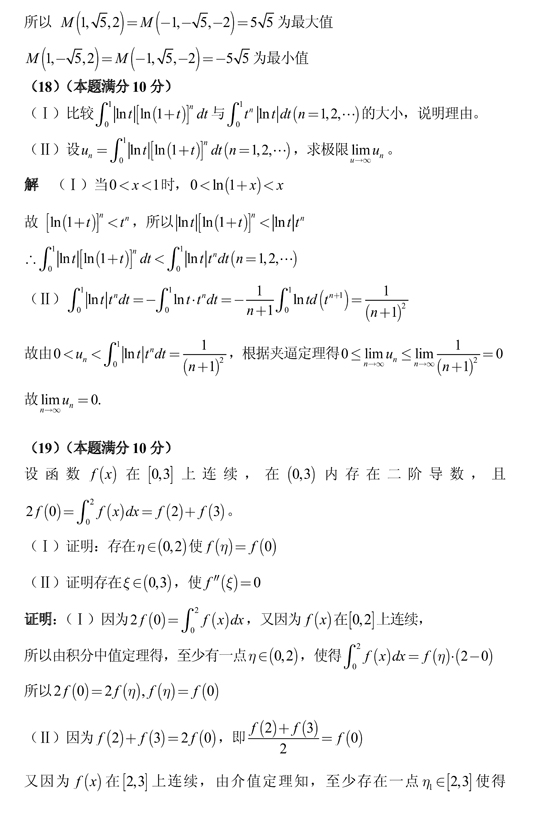 所以 M(1,√5,2)=M(−1,−√5,−2)=5√5 为最大值
M(1,−√5,2)=M(−1,√5,−2)=−5√5 为最小值
（18）（本题满分 10 分）
（Ⅰ）比较∫₀¹|ln t|[ln(1+t)]ⁿ dt 与∫₀¹ tⁿ|ln t|dt(n=1,2,⋯)的大小，说明理由。
（Ⅱ）设uₙ=∫₀¹|ln t|[ln(1+t)]ⁿ dt(n=1,2,⋯)，求极限lim_{u→∞} uₙ。
解 （Ⅰ）当0<x<1时，0<ln(1+x)<x
故 [ln(1+t)]ⁿ<tⁿ，所以|ln t|[ln(1+t)]ⁿ<|ln t|tⁿ
∴∫₀¹|ln t|[ln(1+t)]ⁿ dt<∫₀¹|ln t|tⁿdt(n=1,2,⋯)
（Ⅱ）∫₀¹|ln t|tⁿdt=−∫₀¹ln t·tⁿdt=−1/(n+1)∫₀¹ln td(tⁿ⁺¹)=1/(n+1)²
故由0<uₙ<∫₀¹|ln t|tⁿdt=1/(n+1)²，根据夹逼定理得0≤lim_{n→∞} uₙ≤lim_{n→∞} 1/(n+1)²=0
故lim_{n→∞} uₙ=0.
（19）（本题满分 10 分）
设函数 f(x) 在 [0,3] 上连续，在 (0,3) 内存在二阶导数，且
2f(0)=∫₀²f(x)dx=f(2)+f(3)。
（Ⅰ）证明：存在η∈(0,2)使f(η)=f(0)
（Ⅱ）证明存在ξ∈(0,3)，使f″(ξ)=0
证明:（Ⅰ）因为2f(0)=∫₀²f(x)dx，又因为f(x)在[0,2]上连续，
所以由积分中值定理得，至少有一点η∈(0,2)，使得∫₀²f(x)dx=f(η)·(2−0)
所以2f(0)=2f(η),f(η)=f(0)
（Ⅱ）因为f(2)+f(3)=2f(0)，即(f(2)+f(3))/2=f(0)
又因为f(x)在[2,3]上连续，由介值定理知，至少存在一点η₁∈[2,3]使得